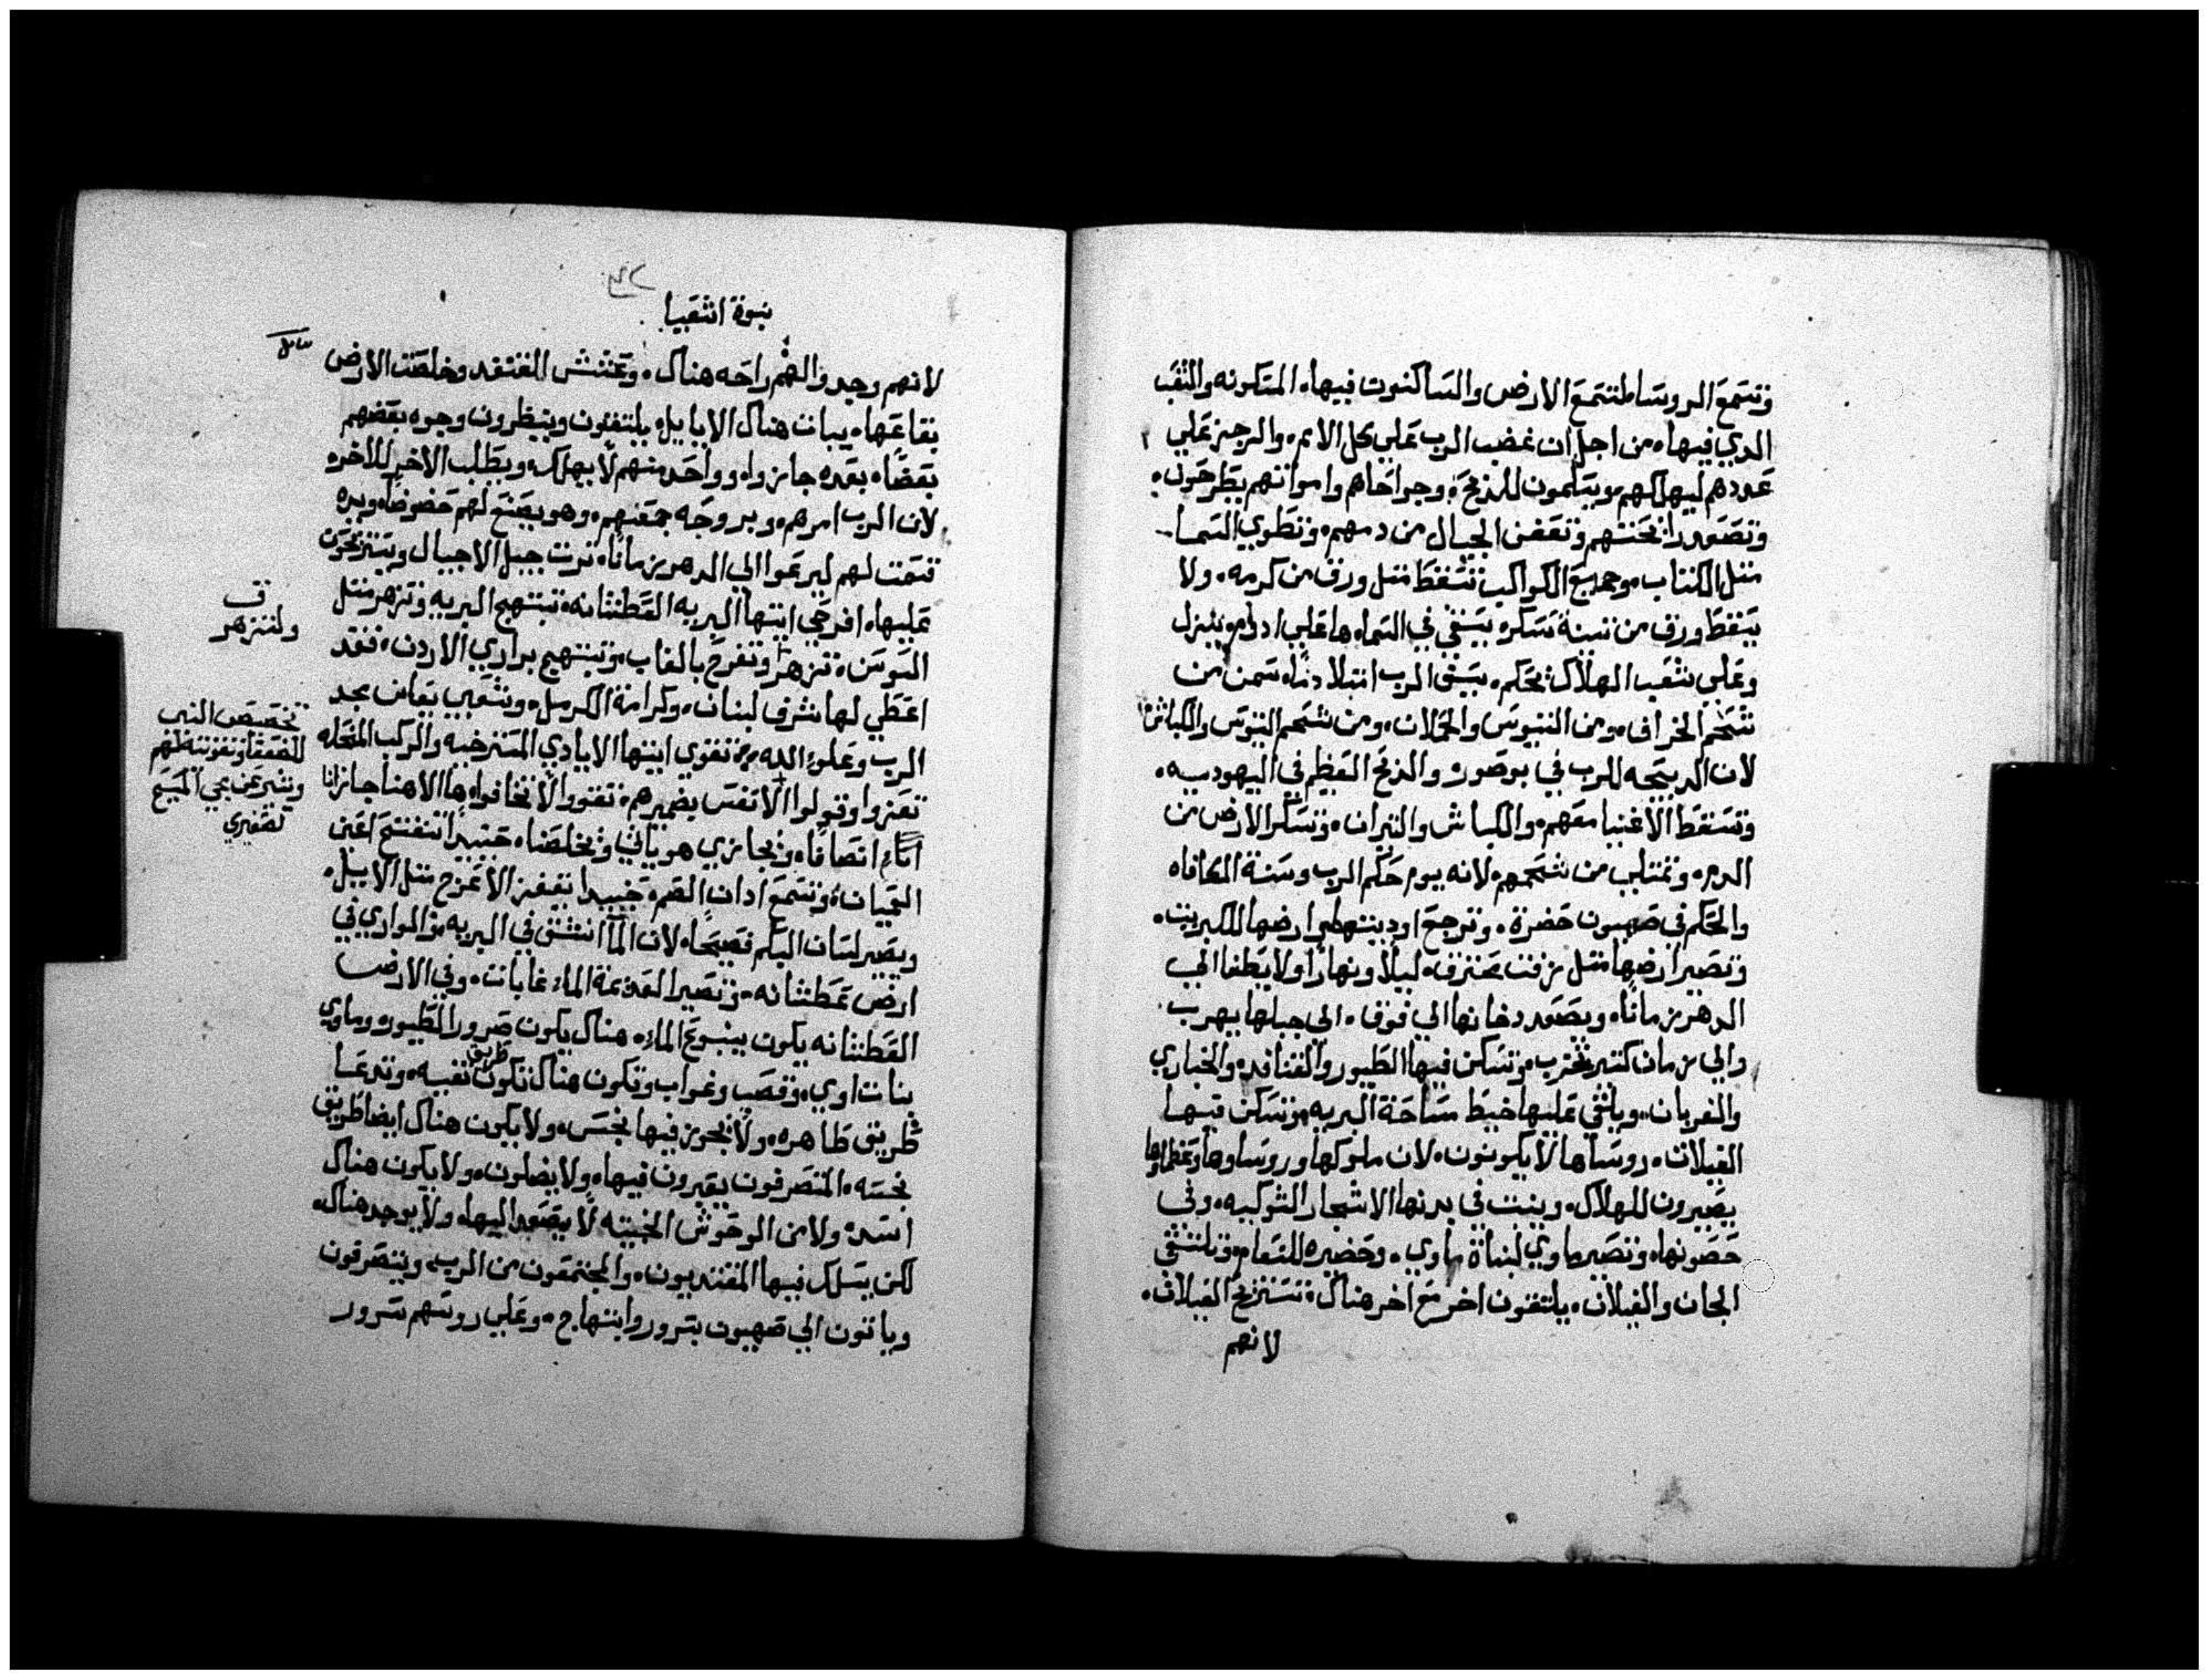 وتسمع الروسا لتسمع الارض والساكنون فيها، المسكونه والشعب
الدي فيها، من اجل ان غضب الرب علي كل الامم، والرجز علي
عددهم ليهلكهم ويسلمون للدبح، وجراحاهم وامواتهم يطرحون،
وتصعد رايحتهم وتعفن الجبال من دمهم، وتطوي السما
متل الكتاب، وجميع الكواكب تسقط متل ورق من كرمه، ولا
يسقط ورق من تينة سكره يسقي في السما، ها علي ادوم ينزل
وعلي شعب الهلاك بحكم، سيف الرب امتلا دمًا، سمن من
شحم الخراف، ومن التيوس والحملان، ومن شحم التيوس والكباش،
لان الدبيحه للرب في بوصور، والدبح العظيم في اليهوديه،
وتسقط الاغنيا معهم، والكباش والتيران، وتسكر الارض من
الدم، وتمتلي من شحمهم، لانه يوم حكم الرب وسنة المكافاه
والحكم في صهيون حضرة، وترجع اوديتها ارضها للكبريت،
وتصير ارضها متل زفت محترق، ليلًا ونهارًا ولا يطفا الي
الدهر زمانًا، ويصعد دخانها الي فوق، الي جيلها يهرب
والي زمان كتير تخرب، وتسكن فيها الطيور والقنافد، والحباري
والغربان، ويلقي عليها خيط مساحة البريه، وتسكن فيها
الغيلان، روساها لا يكونون، لان ملوكها وروساوها وعظماوها
يصيرون للهلاك، وينبت في مدنها الاشجار الشوكيه، وفي
حصونها، وتصير ماوي لبناة ماوي، وحضيره للنعام، وتلتقي
الجان والغيلان، يلتقون اخر مع اخر هناك، تستريح الغيلان،
لانهم
نبوة اشعيا
لانهم وجدوا لهم راحه هناك، وعشش القنفد وخلصت الارض
بقاعها، يبات هناك الايايل، يلتقون وينظرون وجوه بعضهم
بعضًا، بعده جازوا، وواحد منهم لا يهلك، ويطلب الاخر للاخر
لان الرب امرهم، وبروحه جمعهم، وهو يصنع لهم خصوصًا، ويده
قسمت لهم ليرعوا الي الدهر زمانًا، ترت جيل الاجيال ويستريحون
عليها، افرحي ايتها البريه العطشانه، تبتهج البريه وتزهر متل
السوسن، تزهر وتفرح بالغاب، وتبتهج براري الاردن، فقد
اعطي لها شرف لبنان، وكرامة الكرمل، وشعبي يعاين مجد
الرب وعلو الله، تقوي ايتها الايادي المسترخيه والركب المنحله
تعزوا وقولوا الانفس بضميرهم، تقووا لا تخافوا، ها الاهنا جازانا
انتصافًا، ويجازي هو ياتي ويخلصنا، حينيدًا تنفتح اعين
العميان، وتسمع ادان الصم، حينيدا يقفز الاعرج متل الايل،
ويصير لسان البكم فصيحًا، لان الما انشق في البريه، والوادي في
ارض عطشانه، وتصير العديمة الماء غابات، وفي الارض
العطشانه يكون ينبوع الماء، هناك يكون سرور الطيور، وماوي
بنات اوي، وقصب وغاب وتكون هناك تكون طريق نقيه، وتدعا
طريق طاهره، ولا يجوز فيها نجس، ولا يكون هناك ايضا طريق
نجسه، المتصرفون يعبرون فيها، ولا يضلون، ولا يكون هناك
اسد، ولا من الوحوش الخبيته لا يصعد اليها، ولا يوجد هناك،
لكن يسلك فيها المفتديون، والمجتمعون من الرب، ويتصرفون
وياتون الي صهيون بسرور وابتهاج، وعلي روسهم سرور
ف
ولتزهر
تخصيص النبي
للضعفا وتقويته لهم
وتبشير عن مجي المسيح